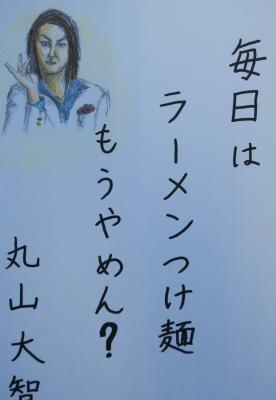 毎日は
ラーメンつけ麺
もうやめん？
丸山大智